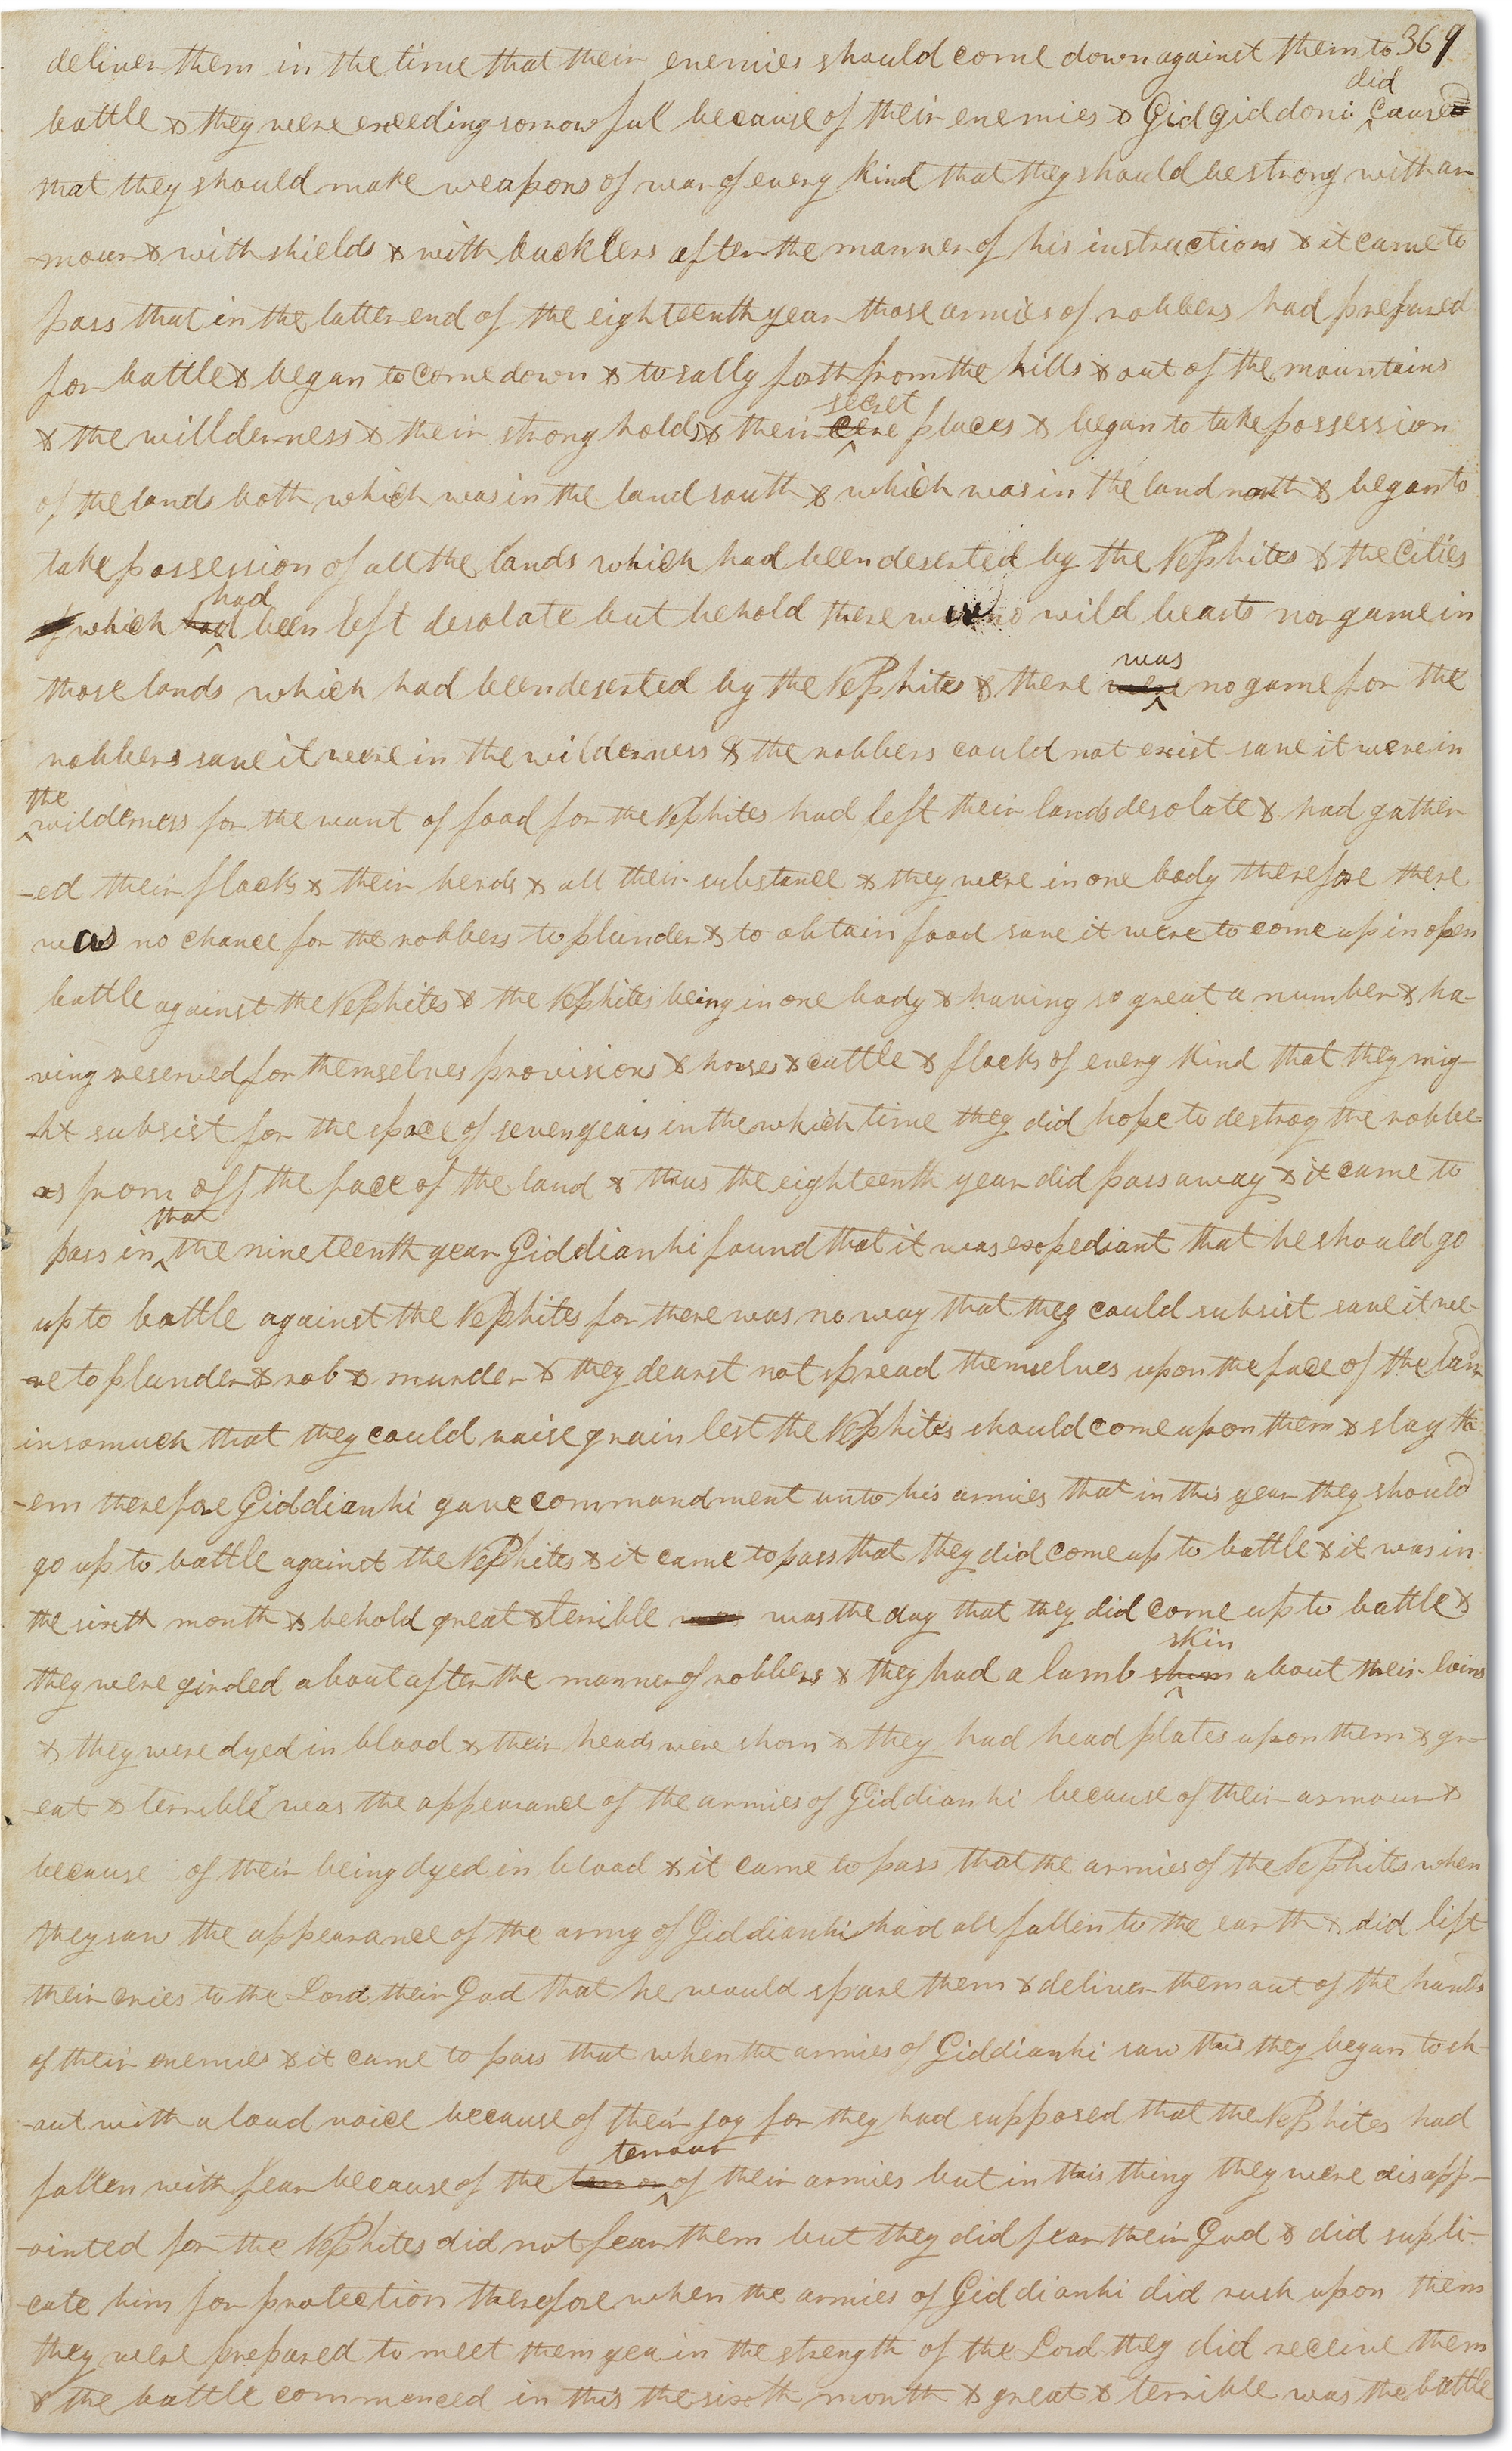 369
deliver them in the time that their enemies should come down against them to
battle & they were exceeding sorrowful because of their enemies & Gidgiddoni did caused
that they should make weapons of war of every kind that they should be strong with ar
-mour & with shields & with bucklers after the manner of his instructions & it came to
pass that in the latter end of the eighteenth year those armies of robbers had prepared
for battle & began to come down & to sally forth from the hills & out of the mountains
& the willderness & their strong holds & their secret places & began to take possession
of the lands both which was in the land south & which was in the land north & began to
take possession of all the lands which had been deserted by the Nephites & the Cities
of which had had been left desolate but behold there were no wild beasts nor game in
those lands which had been deserted by the Nephites & there were was no game for the
robbers save it were in the wilderness & the robbers could not exist save it were in
the wilderness for the want of food for the Nephites had left their lands desolate & had gather
-ed their flocks & their herds & all their substance & they were in one body therefore there
was no chance for the robbers to plunder & to obtain food save it were to come up in open
battle against the Nephites & the Nephites being in one body & having so great a number & ha-
ving reserved for themselves provisions & horses & cattle & flocks of every kind that they mig-
-ht subsist for the space of seven years in the which time they did hope to destroy the robbe-
rs from off the face of the land & thus the eighteenth year did pass away & it came to
pass in that the nineteenth year Giddianhi found that it was expediant that he should go
up to battle against the Nephites for there was no way that they could subsist save it we-
-re to plunder & rob & murder & they dearst not spread themselves upon the face of the land
insomuch that they could raise grain lest the Nephites should come upon them & slay th
-em therefore Giddianhi gave commandment unto his armies that in this year they should
go up to battle against the Nephites & it came to pass that they did come up to battle & it was in
the sixth month & behold great & terrible was was the day that they did come up to battle &
they were girded about after the manner of robbers & they had a lamb skin about their loins
& they were dyed in blood & their heads were shorn & they had head plates upon them & gr-
-eat & terrible was the appearance of the armies of Giddianhi because of their armour &
because of their being dyed in blood & it came to pass that the armies of the Nephites when
they saw the appearance of the army of Giddianhi had all fallen to the earth & did lift
their cries to the Lord their God that he would spare them & deliver them out of the hands
of their enemies & it came to pass that when the armies of Giddianhi saw this they began to sh-
-out with a loud voice because of their joy for they had supposed that the Nephites had
fallen with fear because of the terror terrour of their armies but in this thing they were disapp-
-ointed for the Nephites did not fear them but they did fear their God & did supli-
-cate him for protection therefore when the armies of Giddianhi did rush upon them
they were prepared to meet them yea in the strength of the Lord they did receive them
& the battle commenced in this the sixth month & great & terrible was the battle